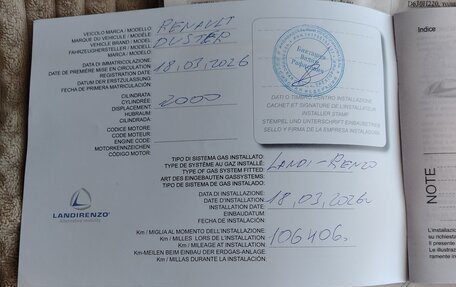 VEICOLO MARCA / MODELLO
MARQUE DU VÉHICULE / MODÈLE
VEHICLE BRAND / MODEL
FAHRZEUGHERSTELLER / MODELL
MARCA / MODELO:
RENAULT
DUSTER
DATA DI IMMATRICOLAZIONE
DATE DE PREMIÈRE MISE EN CIRCULATION
REGISTRATION DATE
DATUM DER ERSTZULASSUNG
FECHA DE PRIMERA MATRICULACIÓN
18,03,2026
CILINDRATA:
CYLINDRÉE:
DISPLACEMENT:
HUBRAUM
CILINDRADA:
2000
CODICE MOTORE:
CODE MOTEUR:
ENGINE CODE:
MOTORKENNZEICHEN
CÓDIGO MOTOR:
DATA O TIMBRO INSTALLAZIONE
CACHET ET SIGNATURE DE L'INSTALLATEUR
INSTALLER STAMP
STEMPEL UND UNTERSCHRIFT EINBAUBETRIEB
SELLO Y FIRMA DE LA EMPRESA INSTALADORA
TIPO DI SISTEMA GAS INSTALLATO:
TYPE DE SYSTÈME AU GAZ INSTALLÉ:
TYPE OF GAS SYSTEM FITTED:
ART DES EINGEBAUTEN GASSYSTEMS:
TIPO DE SISTEMA DE GAS INSTALADO:
LANDI-RENZO
DATA DI INSTALLAZIONE:
DATE D'INSTALLATION:
INSTALLATION DATE:
EINBAUDATUM:
FECHA DE INSTALACIÓN:
18,03,2026
Km / MIGLIA AL MOMENTO DELL'INSTALLAZIONE:
Km / MILLES LORS DE L'INSTALLATION:
Km / MILEAGE AT INSTALLATION:
Km-MEILEN BEIM EINBAU DER ERDGAS-ANLAGE:
Km / MILLAS DURANTE LA INSTALACIÓN:
106406.
LANDIRENZO
Alternative mobility
Indice
NOTE
L'installazio
su richiesta
Il presente
Le illustrazio
ramente ind